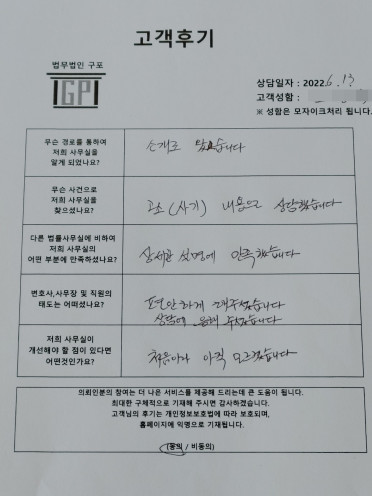 고객후기
법무법인 구포
GP
상담일자 : 2022. 6. 13
고객성함 :
※ 성함은 모자이크처리 됩니다.
무슨 경로를 통하여
저희 사무실을
알게 되었나요?
소개로 왔습니다
무슨 사건으로
저희 사무실을
찾으셨나요?
고소 (사기) 내용으로 상담했습니다
다른 법률사무실에 비하여
저희 사무실의
어떤 부분에 만족하셨나요?
상세한 설명에 만족했습니다
변호사,사무장 및 직원의
태도는 어떠셨나요?
편안하게 해주셨습니다
상담에 응해 주셨습니다
저희 사무실이
개선해야 할 점이 있다면
어떤것인가요?
처음이라 아직 모르겠습니다
의뢰인분의 참여는 더 나은 서비스를 제공해 드리는데 큰 도움이 됩니다.
최대한 구체적으로 기재해 주시면 감사하겠습니다.
고객님의 후기는 개인정보보호법에 따라 보호되며,
홈페이지에 익명으로 기재됩니다.
(동의 / 비동의)